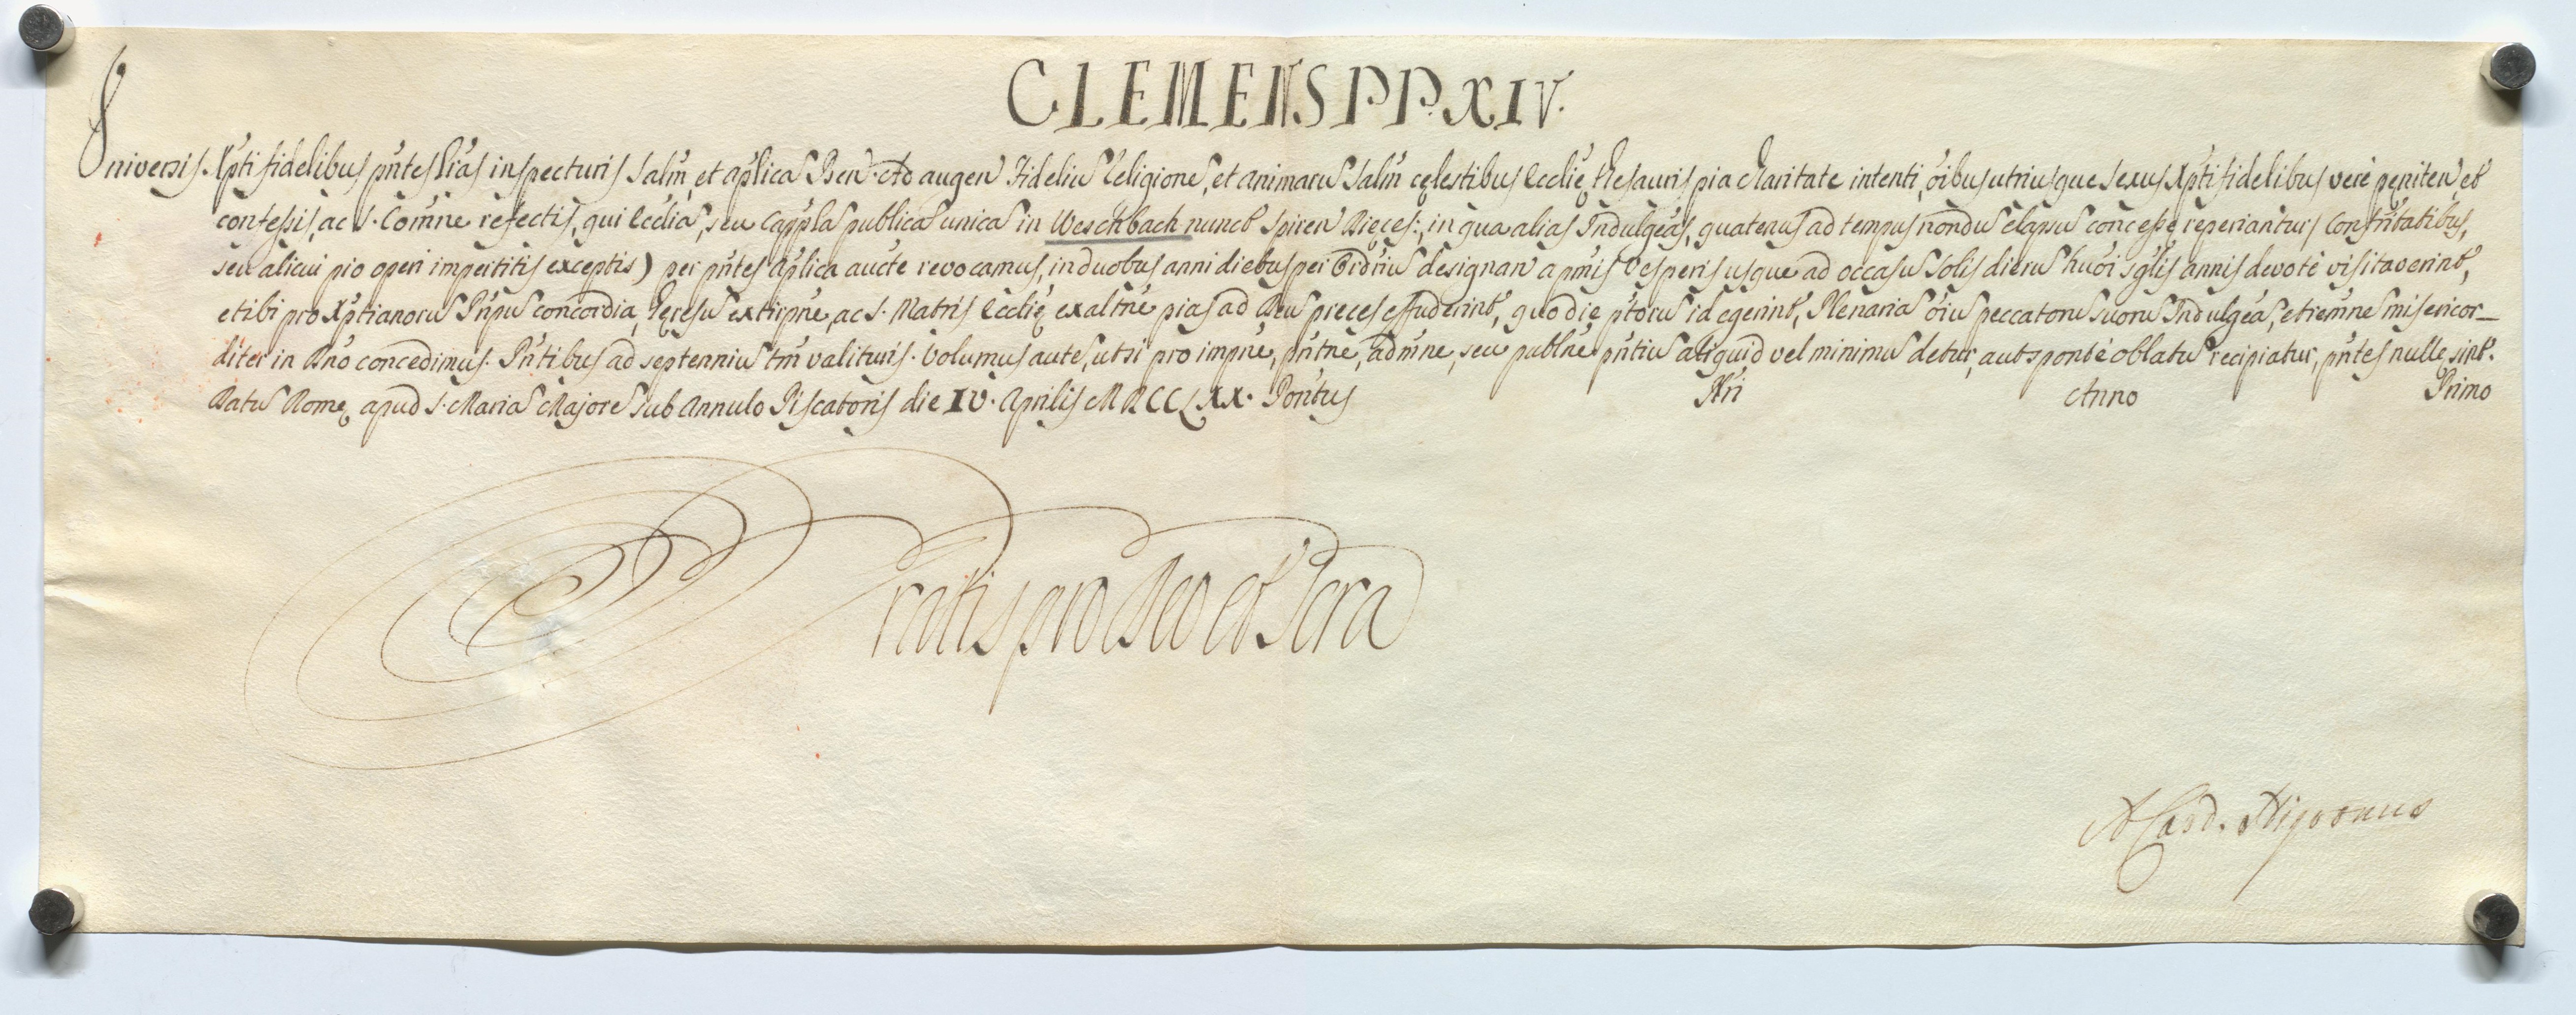 CLEMENS PP. XIV.
Universis Xpti fidelibus pñtes lras inspecturis salm̃ et aplica Ben. Ad augen fideliu Religione, et animaru salm̃ cęlestibus Ecclię thesauris pia charitate intenti, oibus utriusque sexus Xpti fidelibus verè peniten et
confessis, ac S. Com̃ne refectis, qui Ecclia, seu cappla publica unica in Weschbach nunct Spiren Dieces:, in qua alias Indulgeãs, quatenus ad tempus nondu elapsu concesse reperiantur, Confrñitatibus,
seu alicui pio operi impertitis exceptis) per pñtes aplica aucte revocamus, in duobus anni diebus per Ordriu designan a pmis Vesperis usque ad occasu solis dieru huoi sglis annis devotè visitaverint,
et ibi pro Xptianoru Pñpu concordia, hęresu extirpñe, ac S. Matris Ecclię exaltñe pias ad Deu preces effuderint, quo die ptoru id egerint, Plenaria oiu peccatoru suoru Indulgeã, et iem̃ne misericor–
diter in Dño concedimus. Pñtibus ad septenniu tm̃ valituris. Volumus aute, ut si pro impñe, pñtñe, adm̃ne, seu publñe pñtiu aliquid vel minimu detur, aut sponte oblatu recipiatur, pñtes nulle sint.
Datu Romę apud S. Maria Majore sub Annulo Piscatoris die IV. Aprilis MDCCLXX. Pontus Nri Anno Primo
Gratis pro Deo et Scra
A Card. Nigronus